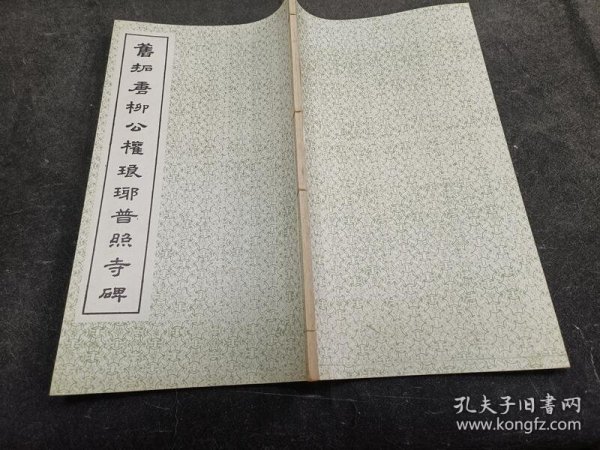 舊拓唐柳公權琅琊普照寺碑
孔夫子旧書网
www.kongfz.com